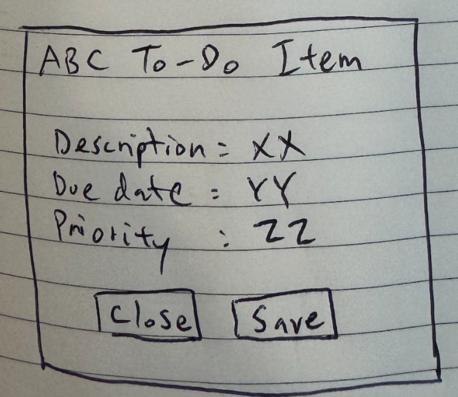 ABC To-Do Item
Description = XX
Due date = YY
Priority : ZZ
Close Save